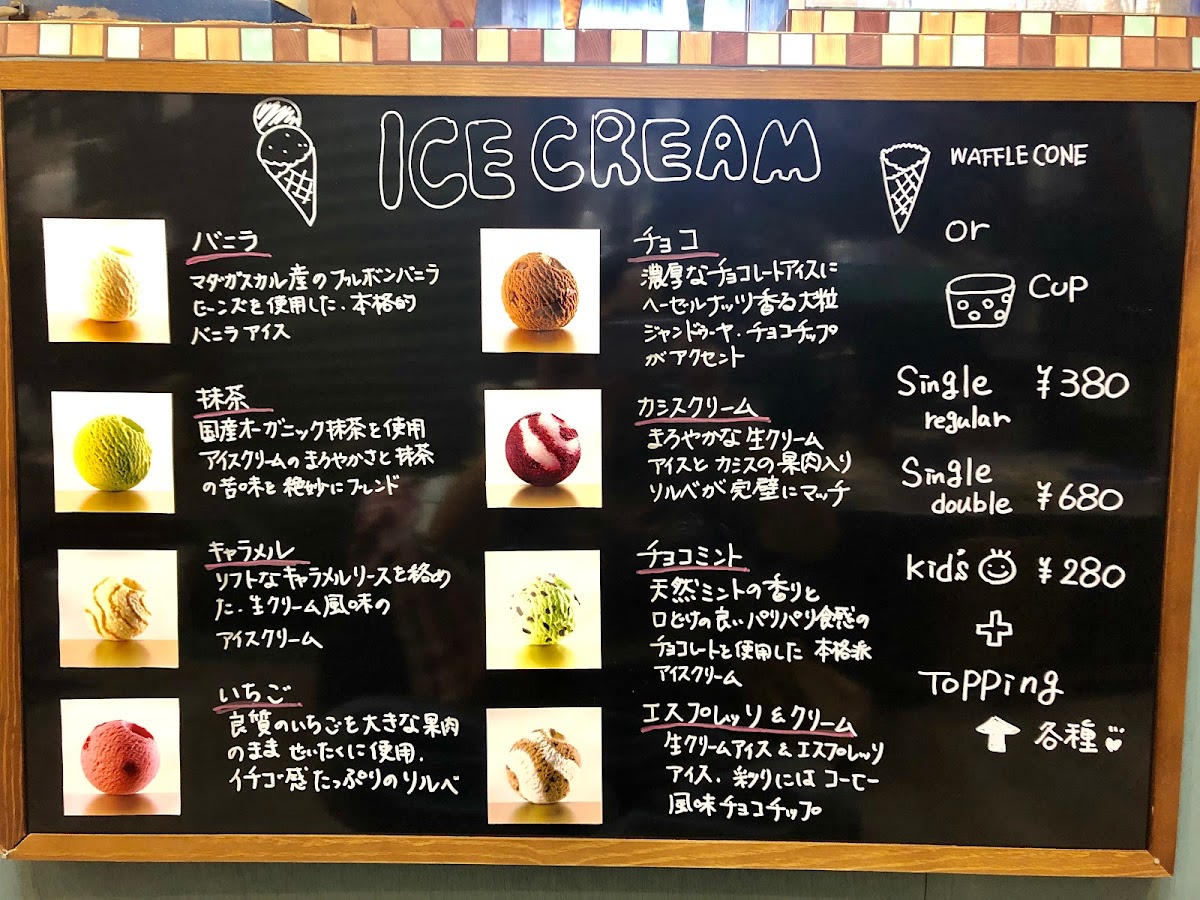 ICE CREAM
バニラ
マダガスカル産のブルボンバニラ
ビーンズを使用した、本格的
バニラアイス
抹茶
国産オーガニック抹茶を使用
アイスクリームのまろやかさと抹茶
の苦味を絶妙にブレンド
キャラメル
ソフトなキャラメルソースを絡め
た、生クリーム風味の
アイスクリーム
いちご
良質のいちごを大きな果肉
のまま ぜいたくに使用.
イチゴ感たっぷりのソルベ
チョコ
濃厚なチョコレートアイスに
ヘーゼルナッツ香る大粒
ジャンドゥーヤ・チョコチップ
がアクセント
カシスクリーム
まろやかな生クリーム
アイスとカシスの果肉入り
ソルベが完璧にマッチ
チョコミント
天然ミントの香りと
口どけの良いパリパリ食感の
チョコレートを使用した 本格派
アイスクリーム
エスプレッソ&クリーム
生クリームアイス&エスプレッソ
アイス. 彩りにはコーヒー
風味チョコチップ
WAFFLE CONE
or
CUP
Single ¥380
regular
Single
double ¥680
kid's ¥280
+
Topping
各種